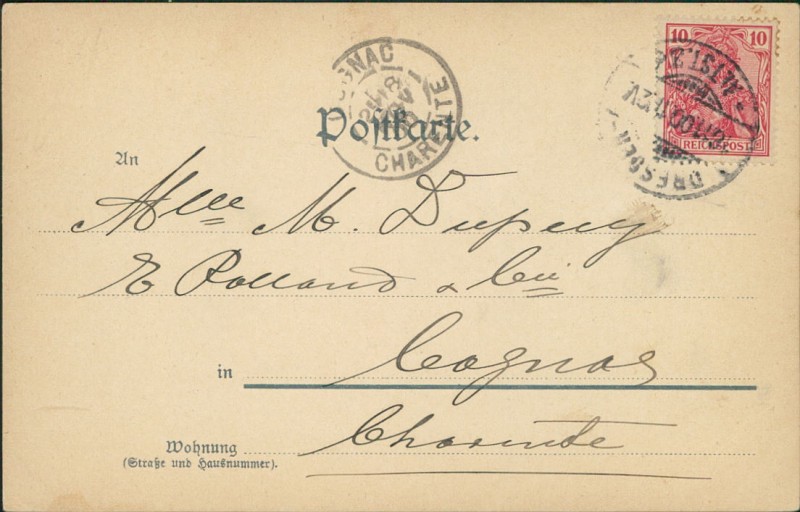 10 10
REICHSPOST
DRESDEN-
ALTST. 2
COGNAC
CHARENTE
Postkarte.
An
Mlle M. Dupuy
E Rolland & Cie
in Cognac
Wohnung
(Straße und Hausnummer).
Charente